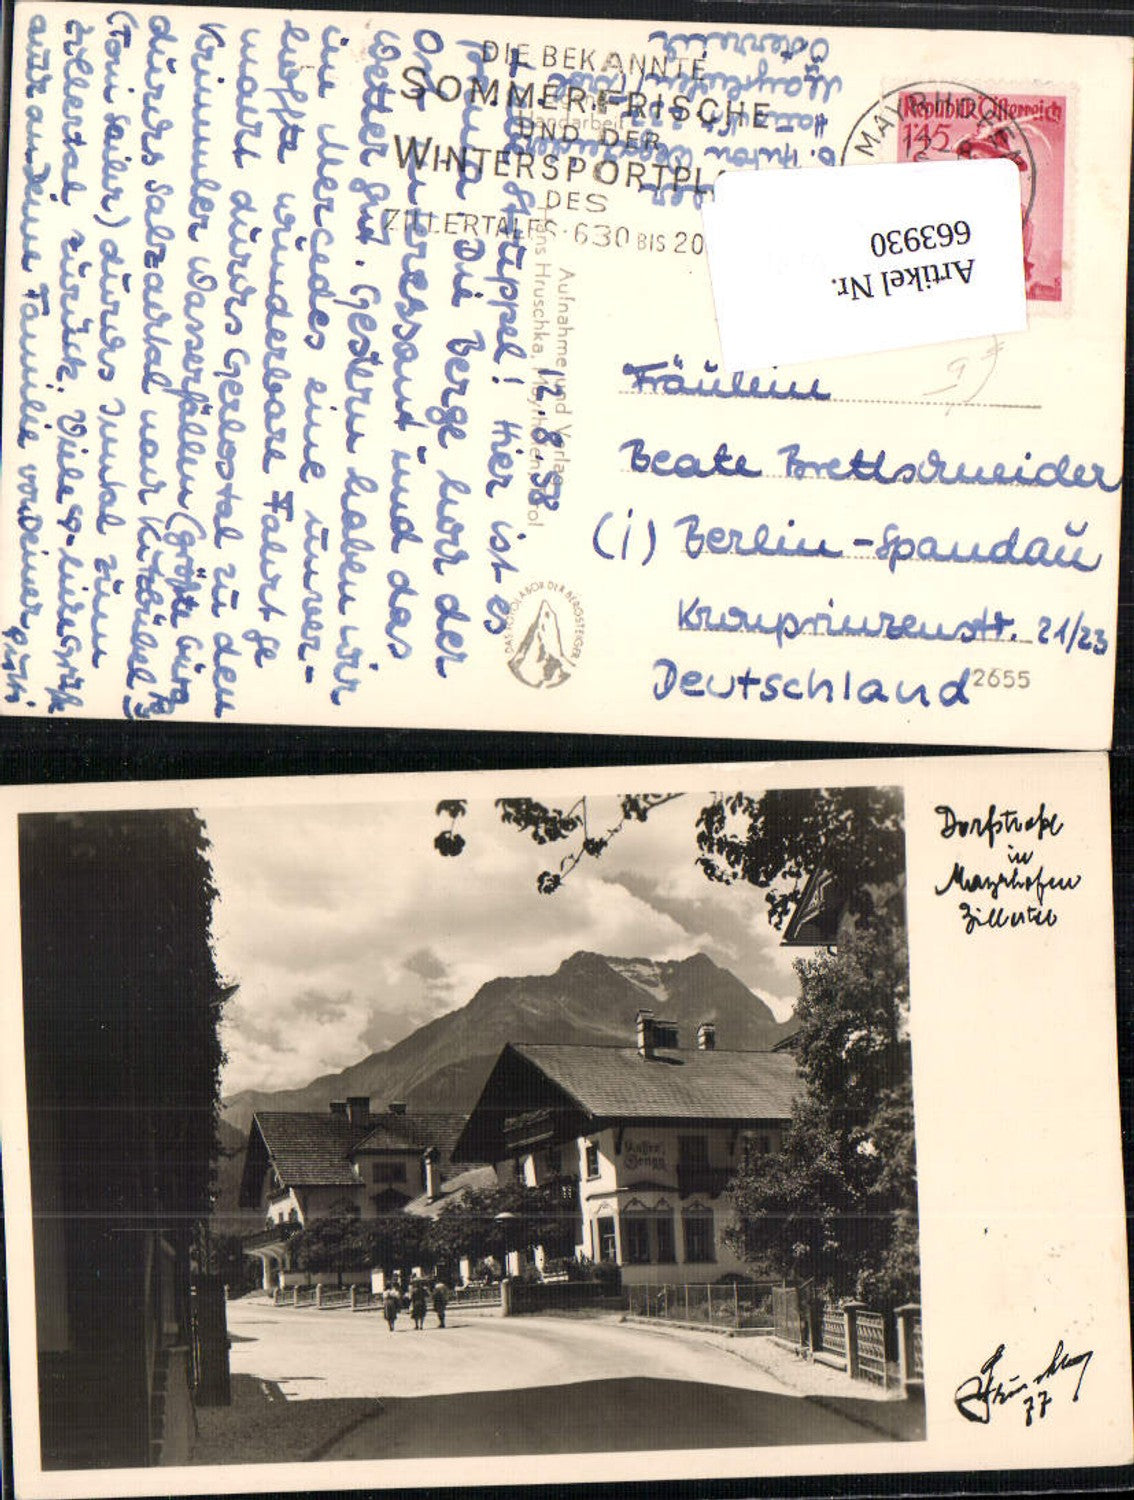 DIE BEKANNTE
SOMMERFRISCHE
UND DER
WINTERSPORTPL
DES
ZILLERTALES · 630 BIS 20
MAYRHOFEN
Republik Österreich
1'45
Artikel Nr.
663930
Handarbeit
Mayrhofen
Österreich
12.8.58
Hier ist es
Du Berge hoch der
interessant und das
Wetter gut. Gestern haben wir
im Mercedes eine unver-
hoffte wunderbare Fahrt ge
macht durchs Gerlostal zu den
Krimmler Wasserfällen (größte Euro
durchs Salzachtal nach Kitzbühel
(Toni Sailer) durchs Inntal zum
Zillertal zurück. Viele Grüße
auch an Deine Familie von Deiner
Aufnahme und Verlag
Hans Hruschka, Mayrhofen, Tirol
DAS FOTOLABOR DER BERGSTEIGER
Fräulein
Beate Brettschneider
(1) Berlin-Spandau
Kronprinzenstr. 21/23
Deutschland
2655
Dorfstraße
in
Mayrhofen
Zillertal
Hruschka
77